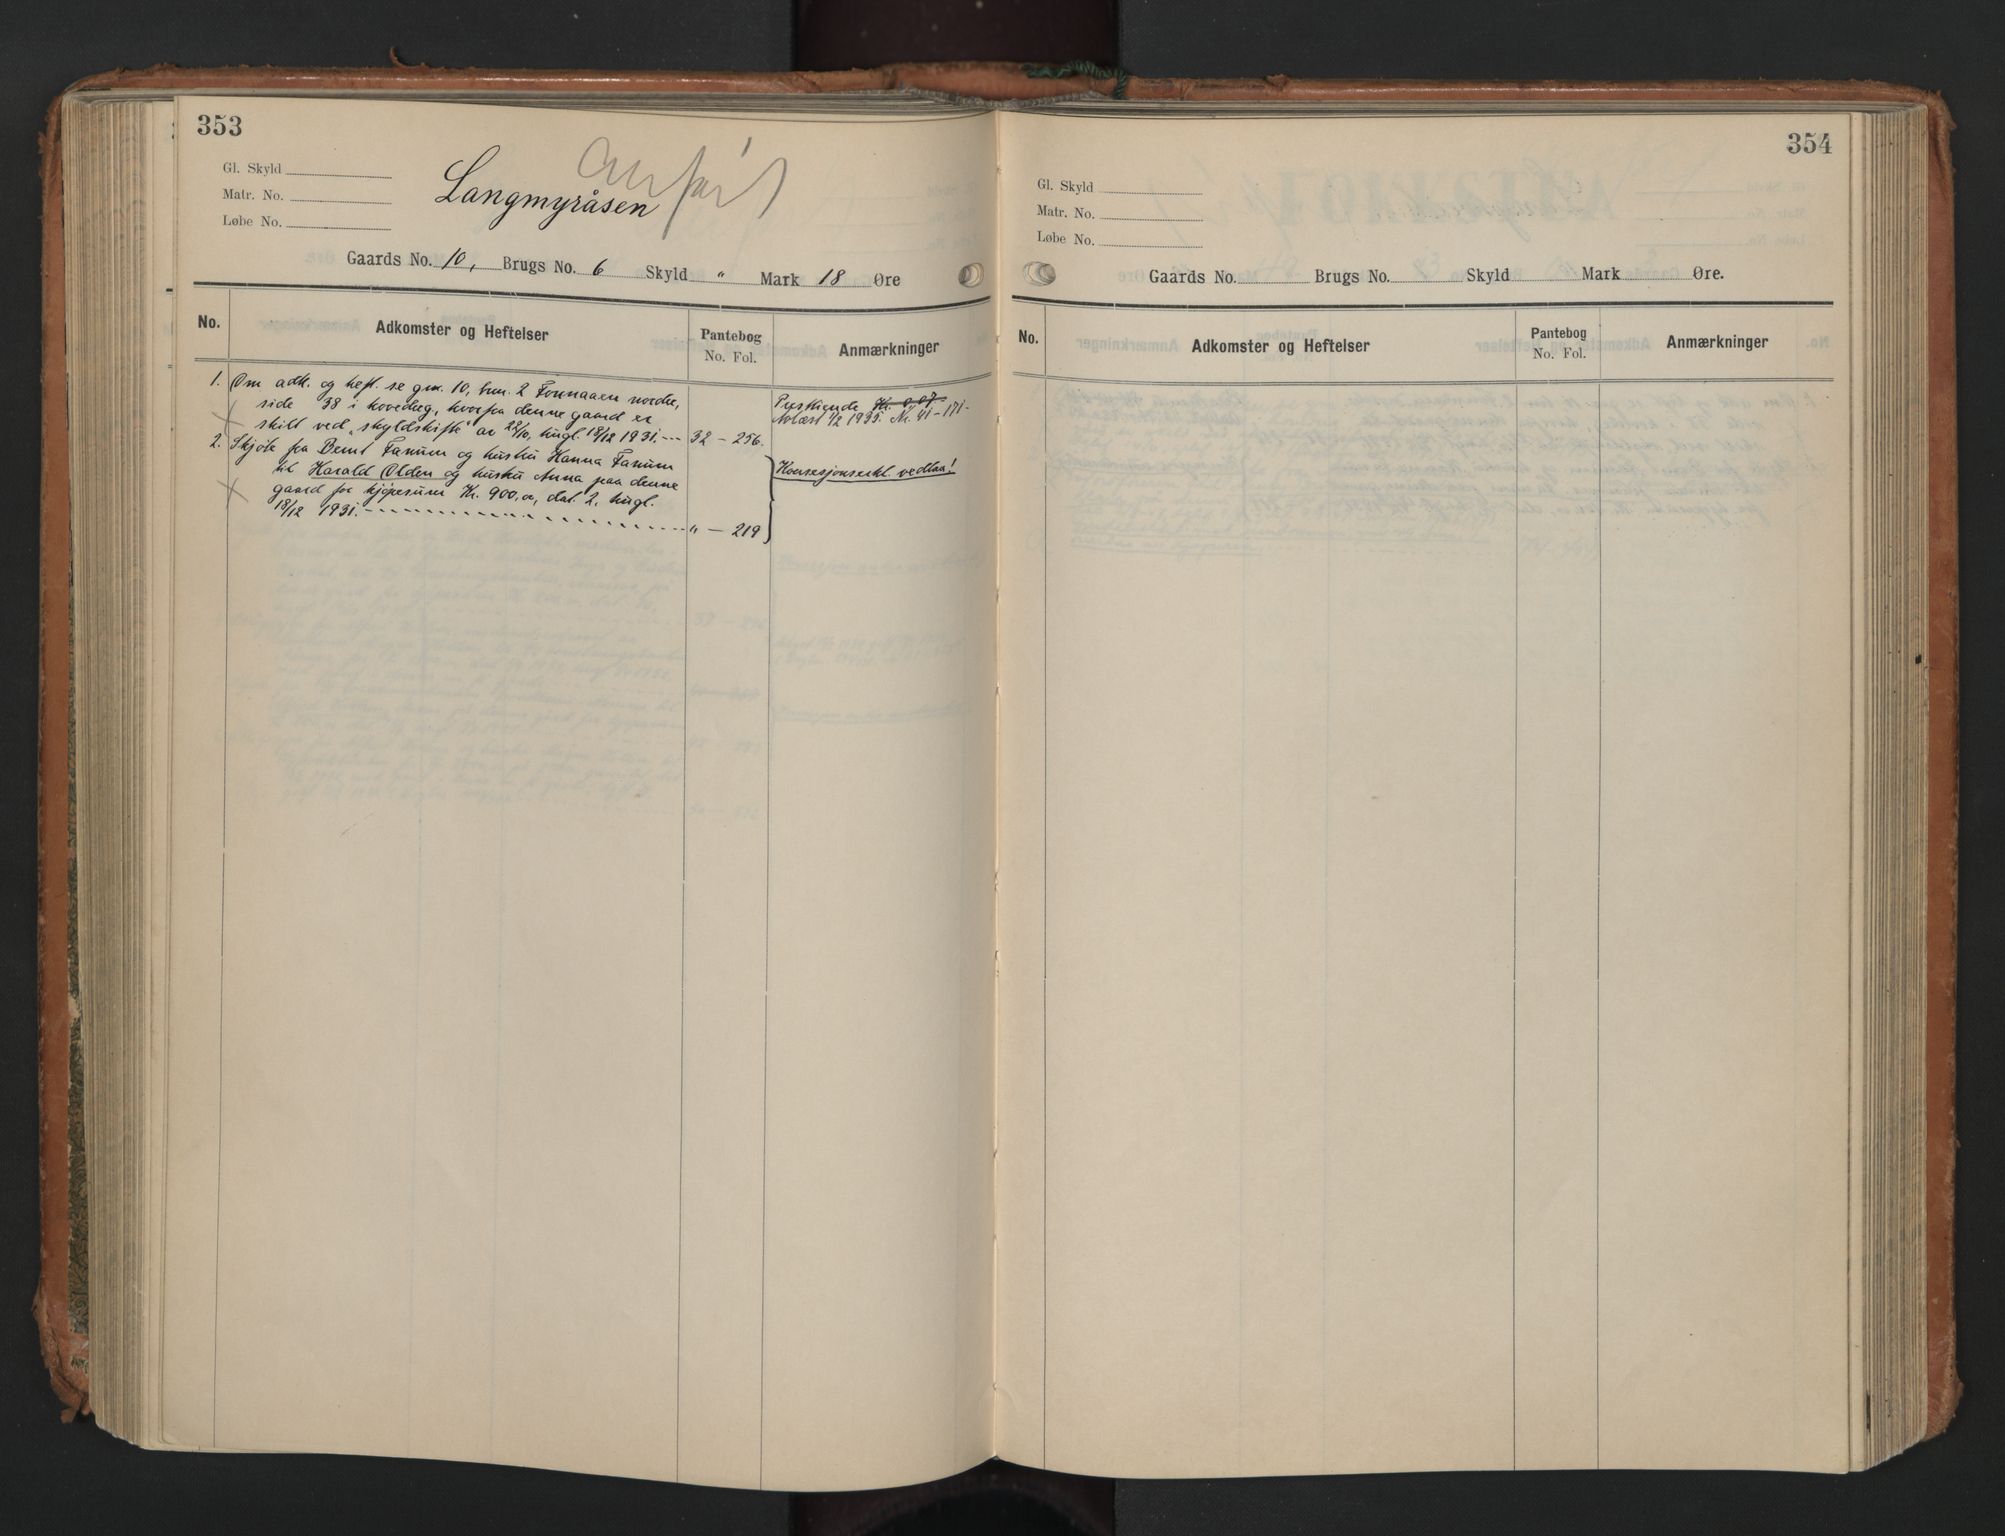 353
Gl. Skyld
Matr. No.
Løbe No.
Langmyråsen
Gaards No. 10, Brugs No. 6 Skyld " Mark 18 Øre
No. Adkomster og Heftelser Pantebog No. Fol. Anmærkninger
1. Om adk. og heft. se gnr. 10, bnr. 2 nordre,
side 38 i hovedreg, hvorfra denne gaard er
skilt ved „skyldskifte" av 22/10, tingl. 18/12 1931. --- 32 – 256.
Kr. 0,07
Avløst 1/2 1935. Nr. 41 – 171 -
2. Skjøte fra Bernt Fanum og hustru Hanna Fanum
til Harald Olden og hustru Anna paa denne
gaard for kjøpesum Kr. 900,00, dat. 2, tingl.
18/12 1931. " – 219
Konsesjonserkl. vedlaa!
354
Gl. Skyld
Matr. No.
Løbe No.
Gaards No. Brugs No. Skyld Mark Øre.
No. Adkomster og Heftelser Pantebog No. Fol. Anmærkninger